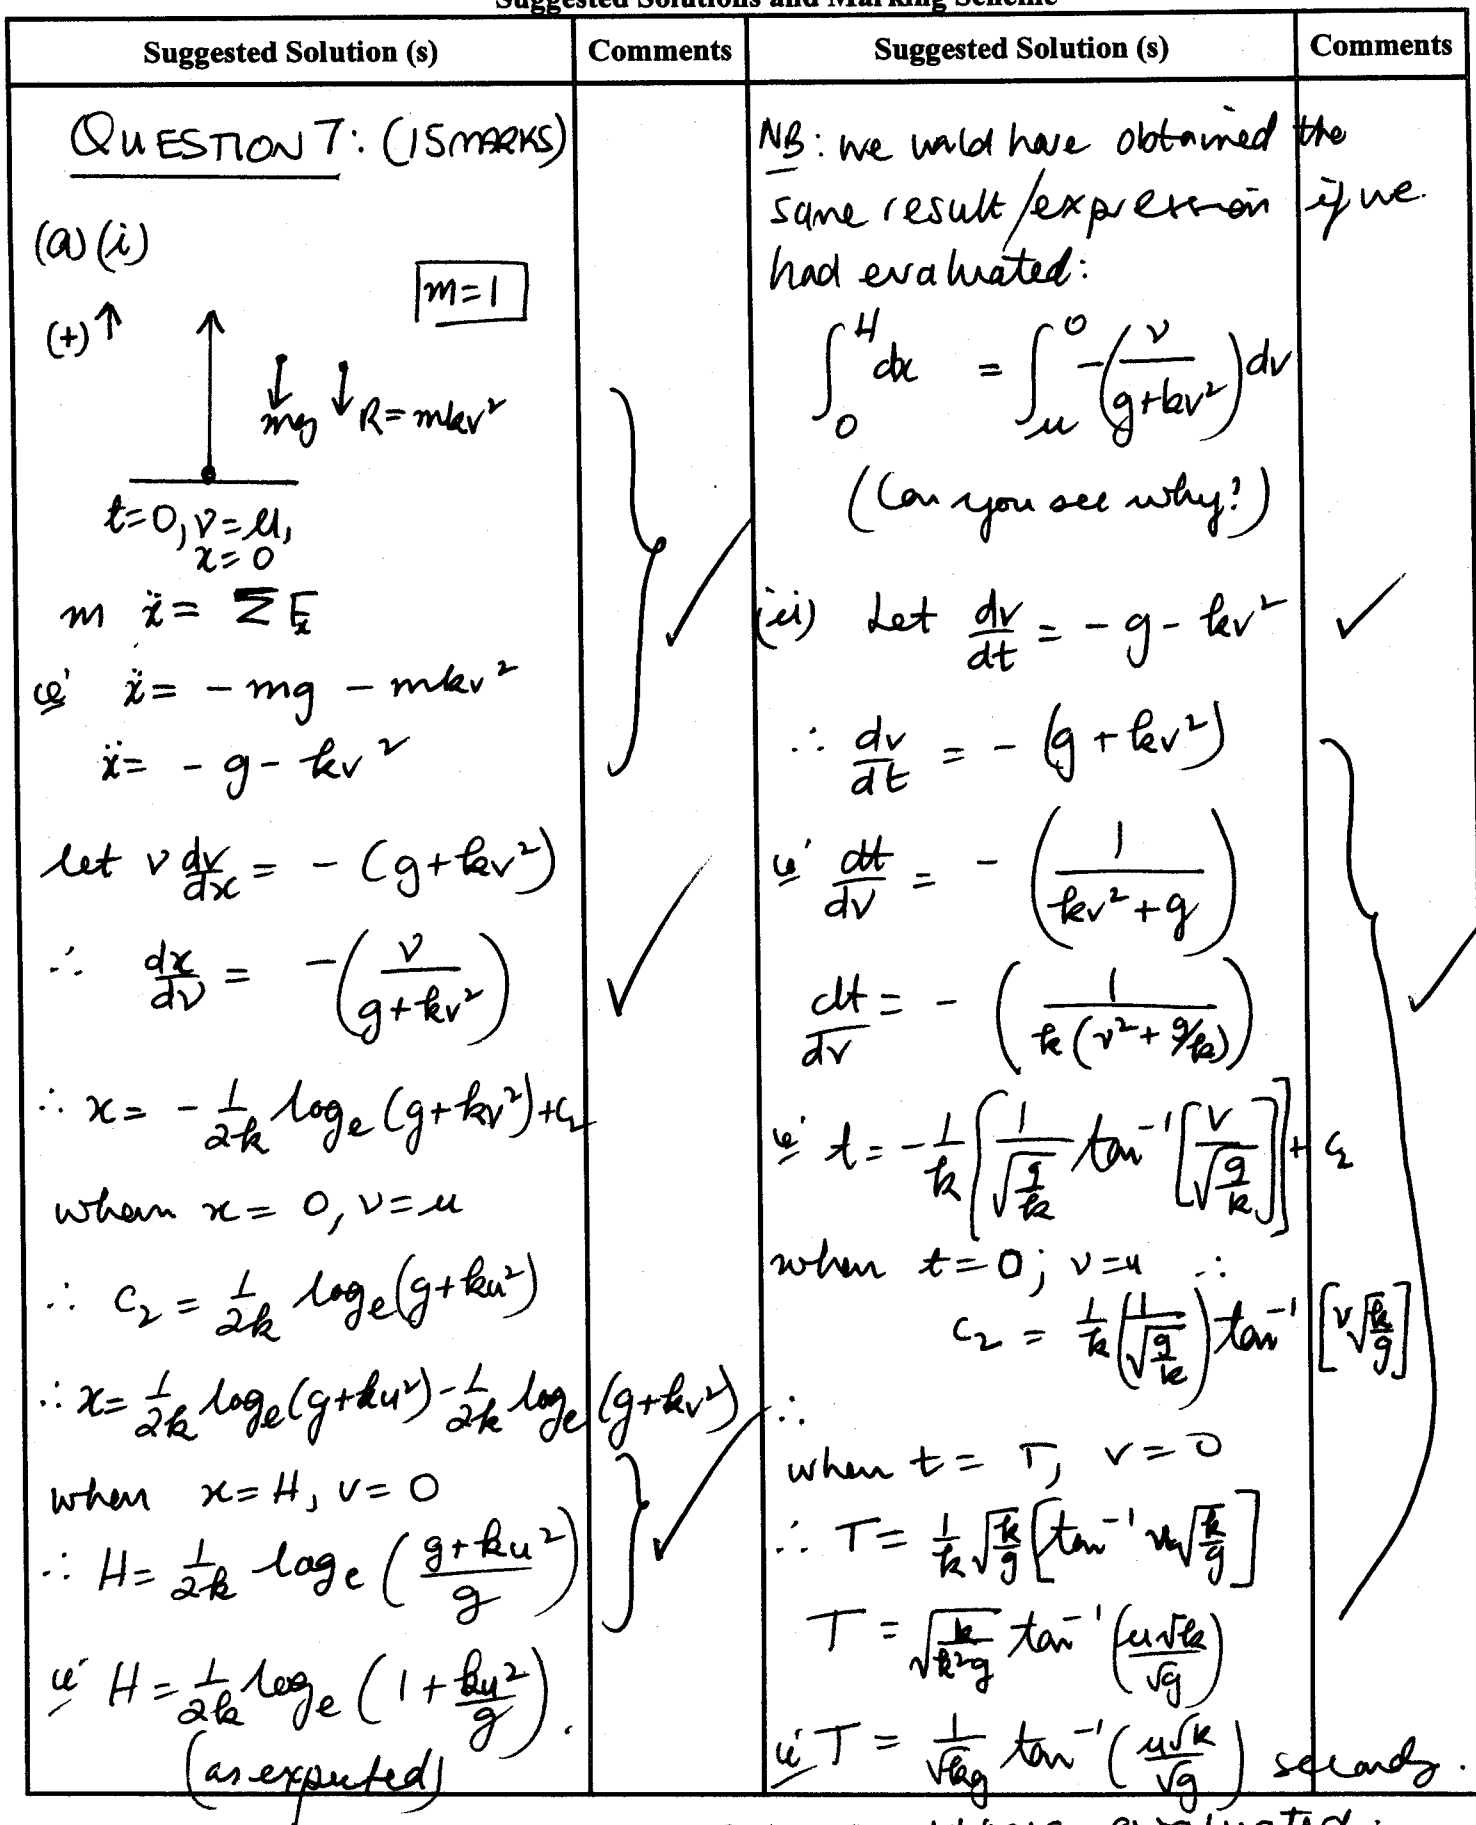 Suggested Solutions and Marking Scheme
Suggested Solution (s)
Comments
QUESTION 7: (15 MARKS)
(a) (i)
m=1
(+) ↑
mg R = mkv²
t=0, v=u,
x=0
m ẍ = Σ Fₓ
ie ẍ = - mg - mkv²
ẍ = - g - kv²
let v dv/dx = - (g+kv²)
∴ dx/dv = - (v/(g+kv²))
∴ x = - 1/2k logₑ (g+kv²) + c₂
when x = 0, v = u
∴ c₂ = 1/2k logₑ (g+ku²)
∴ x = 1/2k logₑ (g+ku²) - 1/2k logₑ (g+kv²)
when x = H, v = 0
∴ H = 1/2k logₑ ((g+ku²)/g)
ie H = 1/2k logₑ (1 + ku²/g).
(as expected)
Suggested Solution (s)
Comments
NB: we would have obtained the
same result/expression if we
had evaluated:
∫₀ᴴ dx = ∫ᵤ⁰ -(v/(g+kv²)) dv
(Can you see why?)
(ii) Let dv/dt = - g - kv²
∴ dv/dt = - (g + kv²)
ie dt/dv = - (1/(kv²+g))
dt/dv = - (1/(k(v²+g/k)))
ie t = - 1/k [1/√(g/k) tan⁻¹ [v/√(g/k)]] + c₂
when t=0; v=u ∴
c₂ = 1/k (1/√(g/k)) tan⁻¹ [v√(k/g)]
∴
when t = T, v = 0
∴ T = 1/k √(k/g) [tan⁻¹ u√(k/g)]
T = √(k/k²g) tan⁻¹ (u√k/√g)
ie T = 1/√kg tan⁻¹ (u√k/√g) seconds.
evaluated: